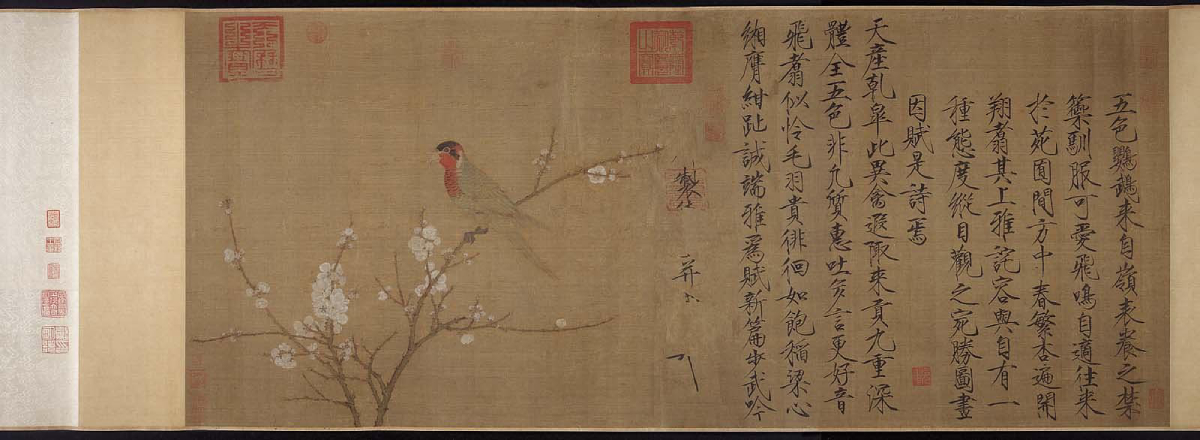 五色鸚鵡來自嶺表養之禁
籞馴服可愛飛鳴自適往來
於苑囿間方中春繁杏遍開
翔翥其上雅詫容與自有一
種態度縱目觀之宛勝圖畫
因賦是詩焉
天産乾皋此異禽遐陬來貢九重深
體全五色非凡質惠吐多言更好音
飛翥似憐毛羽貴徘徊如飽稻粱心
緗膺紺趾誠端雅爲賦新篇步武吟
製
并